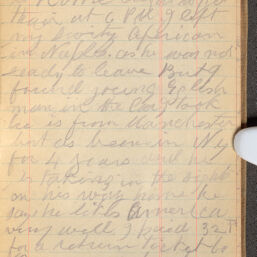 train at 6 PM I left
my
in Naples as he was not
ready to leave But I
found young English
man in the
he is from Manchester
but as been in NY
for 4 years and he
is taking in the sight
on his way home he
say he likes America
very well I paid 32
for a return ticket to